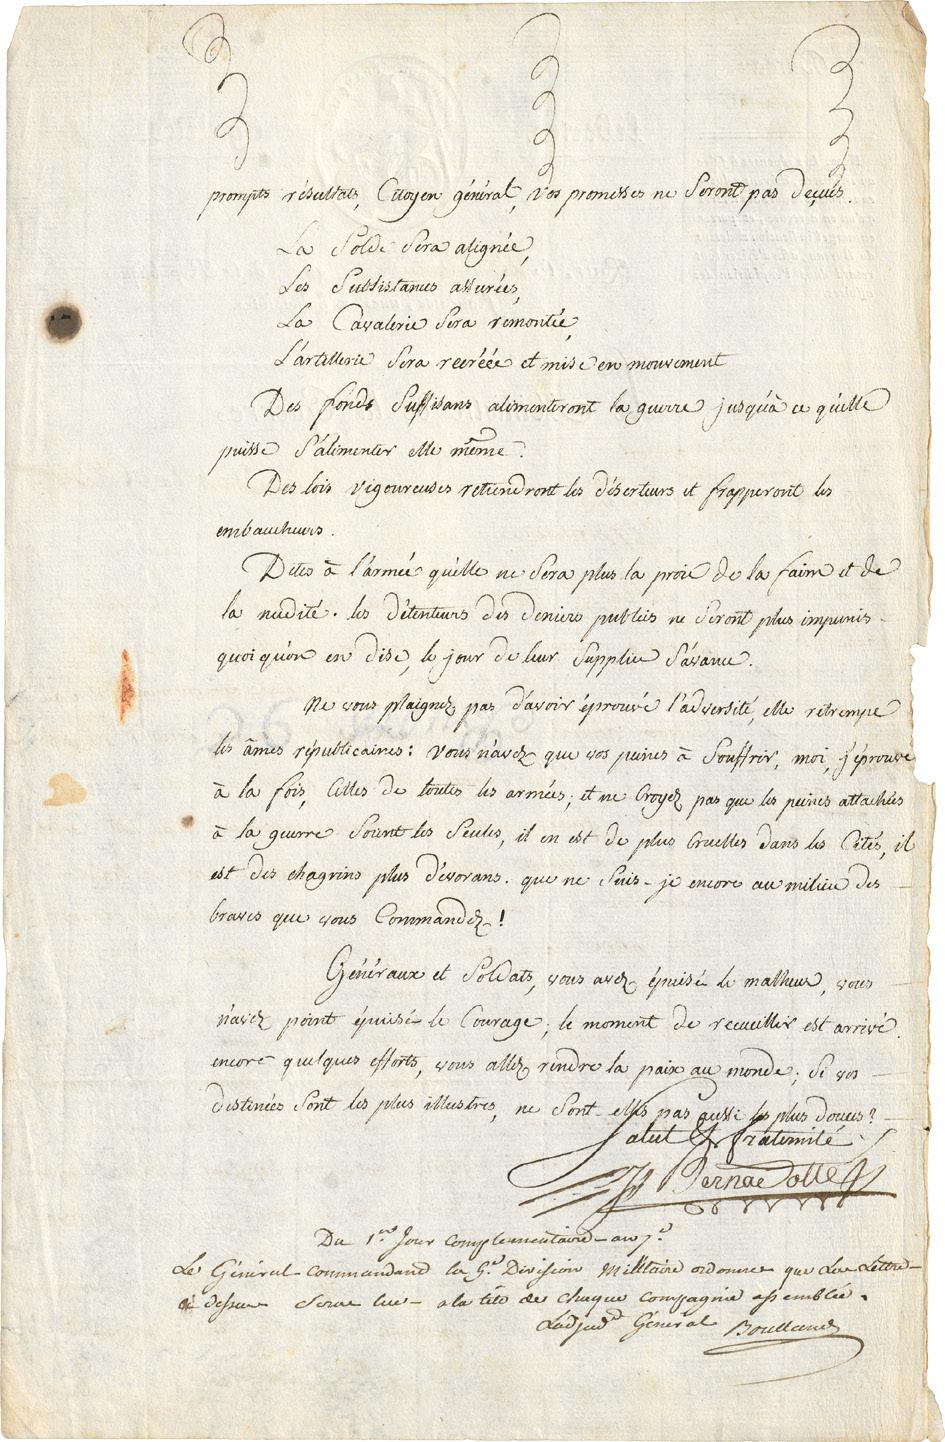 prompts résultats, Citoyen général, vos promesses ne seront pas deçues.
La Solde sera alignée,
Les Subsistances assurées,
La Cavalerie sera remontée,
L'artillerie sera recréée et mise en mouvement
Des fonds suffisans alimenteront la guerre jusqu'à ce qu'elle
puisse s'alimenter elle même.
Des lois vigoureuses retiendront les déserteurs et frapperont les
embaucheurs.
Dites à l'armée qu'elle ne sera plus la proie de la faim et de
la nudité. les détenteurs des deniers publics ne seront plus impunis
quoi qu'on en dise, le jour de leur supplice s'avance.
Ne vous plaignez pas d'avoir éprouvé l'adversité, elle retrempe
les âmes républicaines: vous n'avez que vos peines à souffrir, moi, j'éprouve
à la fois, celles de toutes les armées; et ne croyez pas que les peines attachées
à la guerre soient les seules, il en est de plus cruelles dans les Cités, il
est des chagrins plus dévorans. que ne suis-je encore au milieu des
braves que vous commandez!
Généraux et soldats, vous avez épuisé le malheur, vous
n'avez point épuisé le courage; le moment de recueillir est arrivé.
encore quelques efforts, vous allez rendre la paix au monde; si vos
destinées sont les plus illustres, ne sont-elles pas aussi les plus douces?
Salut & fraternité
Bernadotte
Du 1er Jour complementaire an 7e
Le Général commandand la 9e Division Militaire ordonne que La Lettre
dessus Serae lue a la tête de chaque compagnie assemblée.
Ladjud Général Boulland